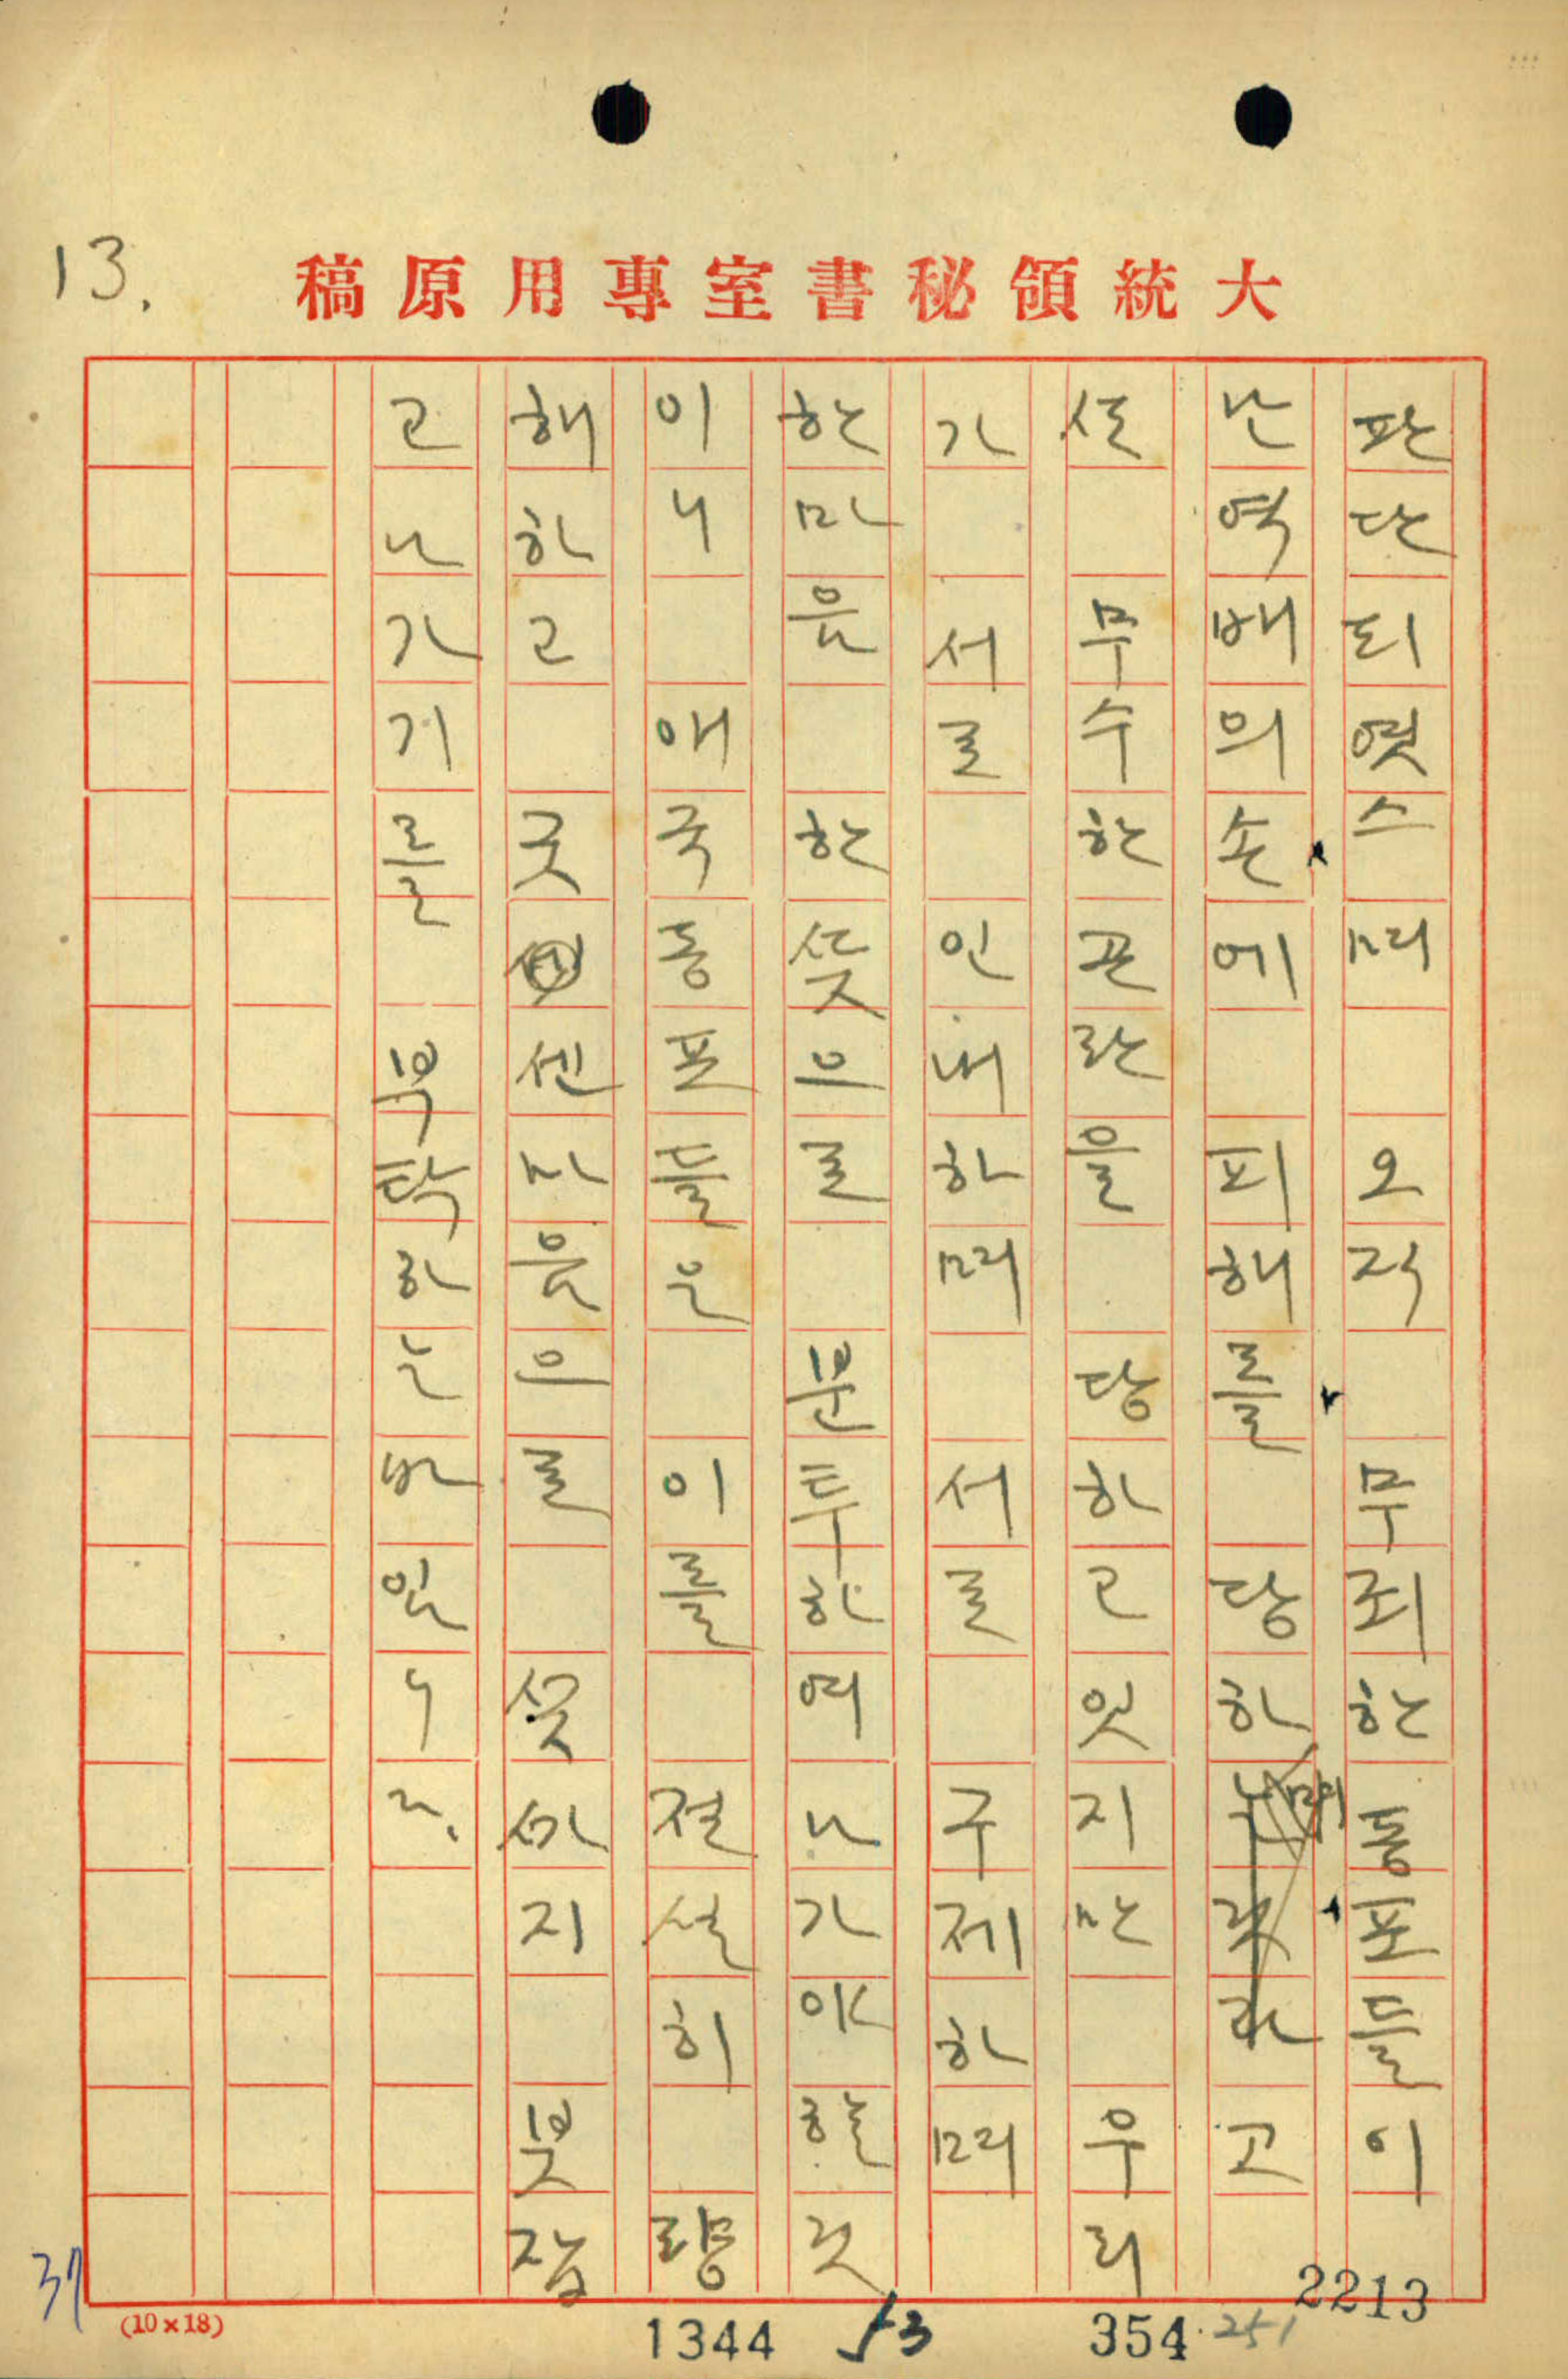 大統領秘書室專用原稿
13.
판단되엿스며 오직 무죄한동포들이
난역배의손에 피해를 당하며 고
무수한곤란을 당하고잇지만 우리
가 서로 인내하며 서로 구제하며
한마음 한뜻으로 분투하여나가야할것
이니 애국동포들은 이를 절실히 량
해하고 굿센마음으로 끗까지 붓잡
고나가기를 부탁하는바입니다.
37
(10×18)
1344
53
354
251
2213